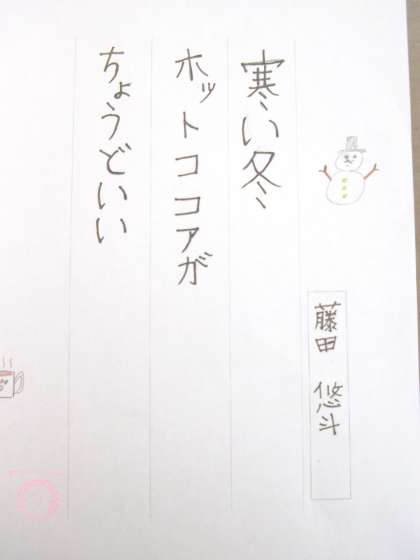 藤田 悠斗
寒い冬
ホットココアが
ちょうどいい